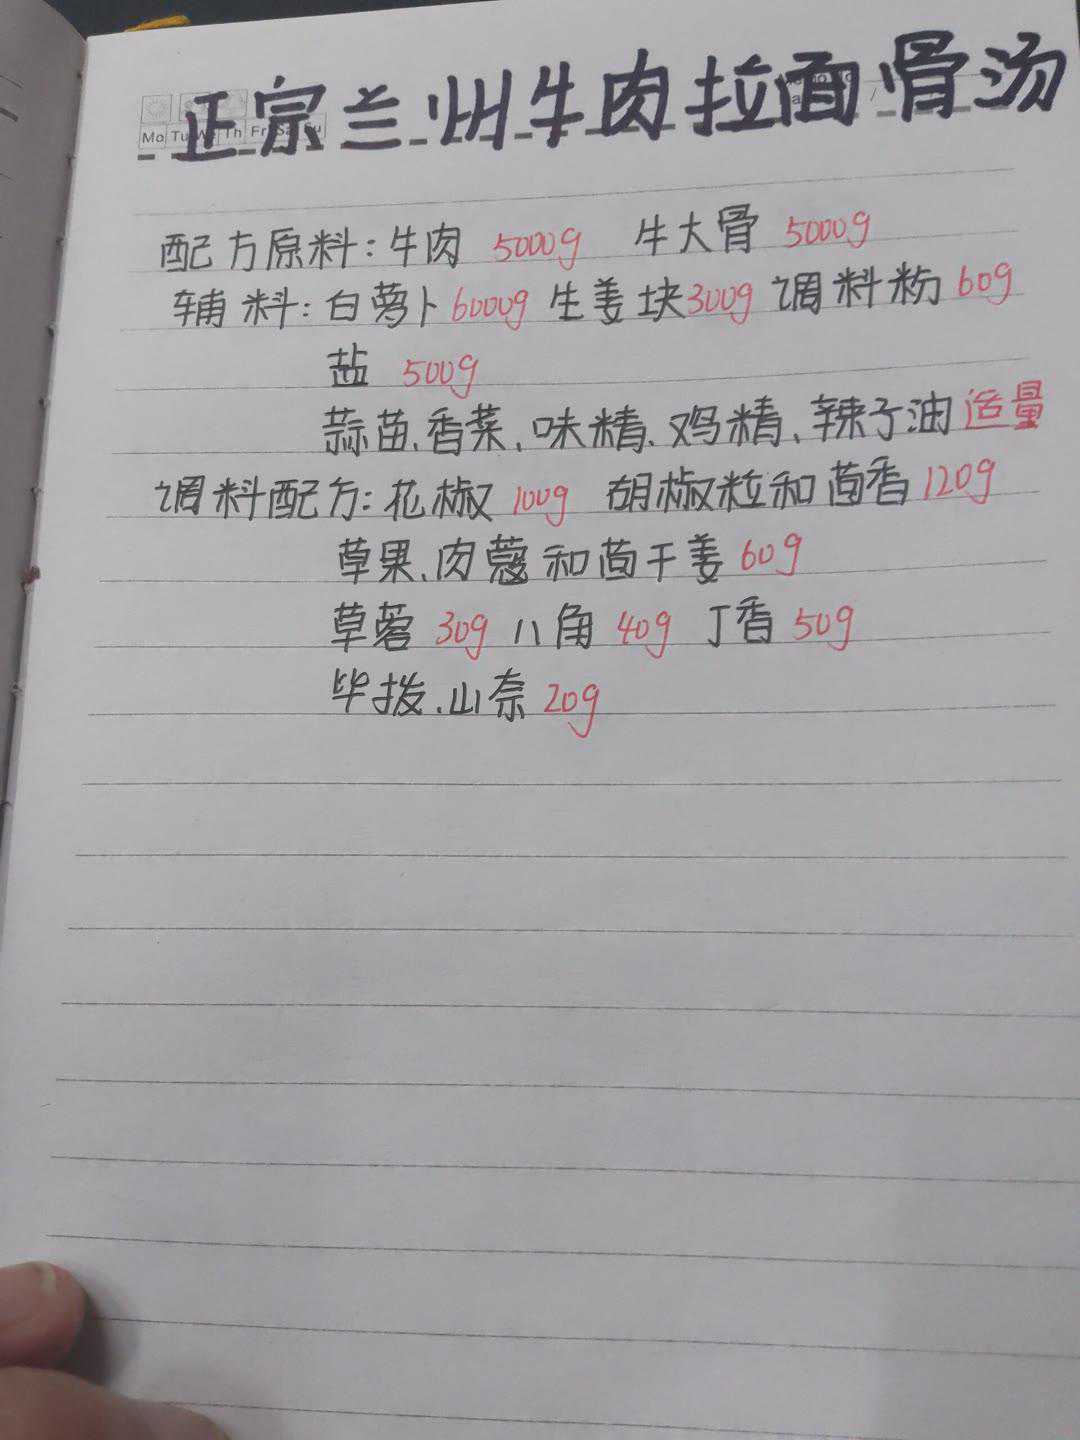 Mo Tu We Th Fr Sa Su
正宗兰州牛肉拉面骨汤
配方原料:牛肉 5000g 牛大骨 5000g
辅料:白萝卜6000g 生姜块300g 调料粉60g
盐 500g
蒜苗、香菜、味精、鸡精、辣子油适量
调料配方:花椒100g 胡椒粒和茴香120g
草果、肉蔻和茴干姜60g
草蔻 30g 八角 40g 丁香 50g
毕拨、山奈20g